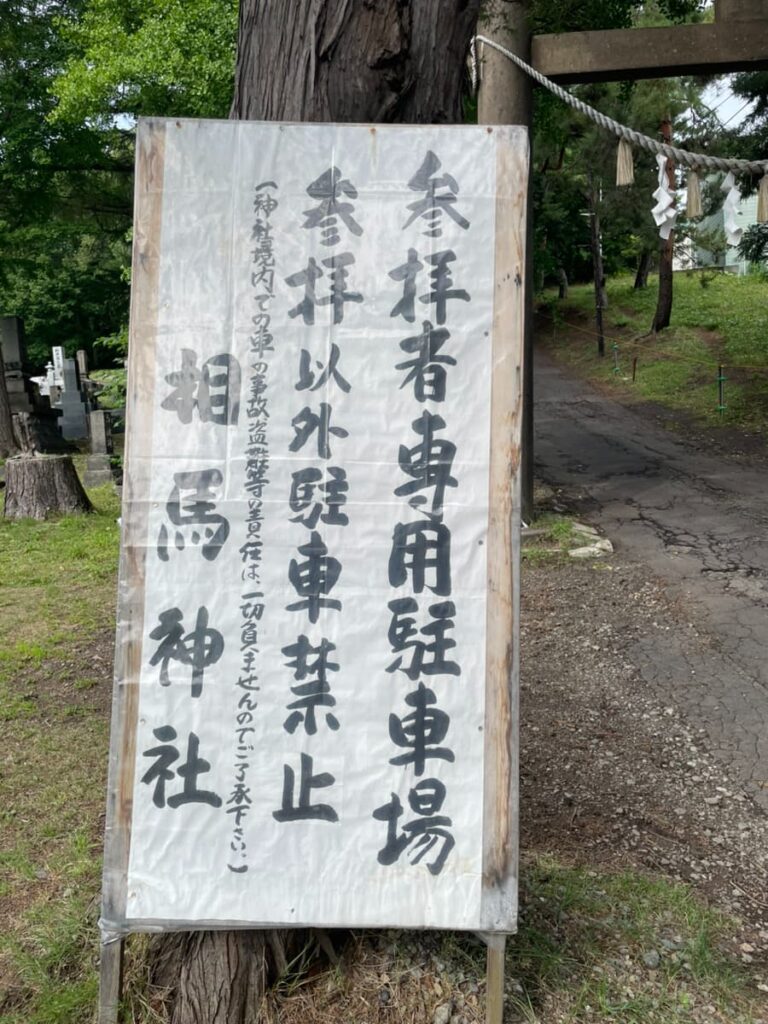 参拝者専用駐車場
参拝以外駐車禁止
(神社境内での車の事故盗難等の責任は、一切負ませんのでご了承下さい。)
相馬神社